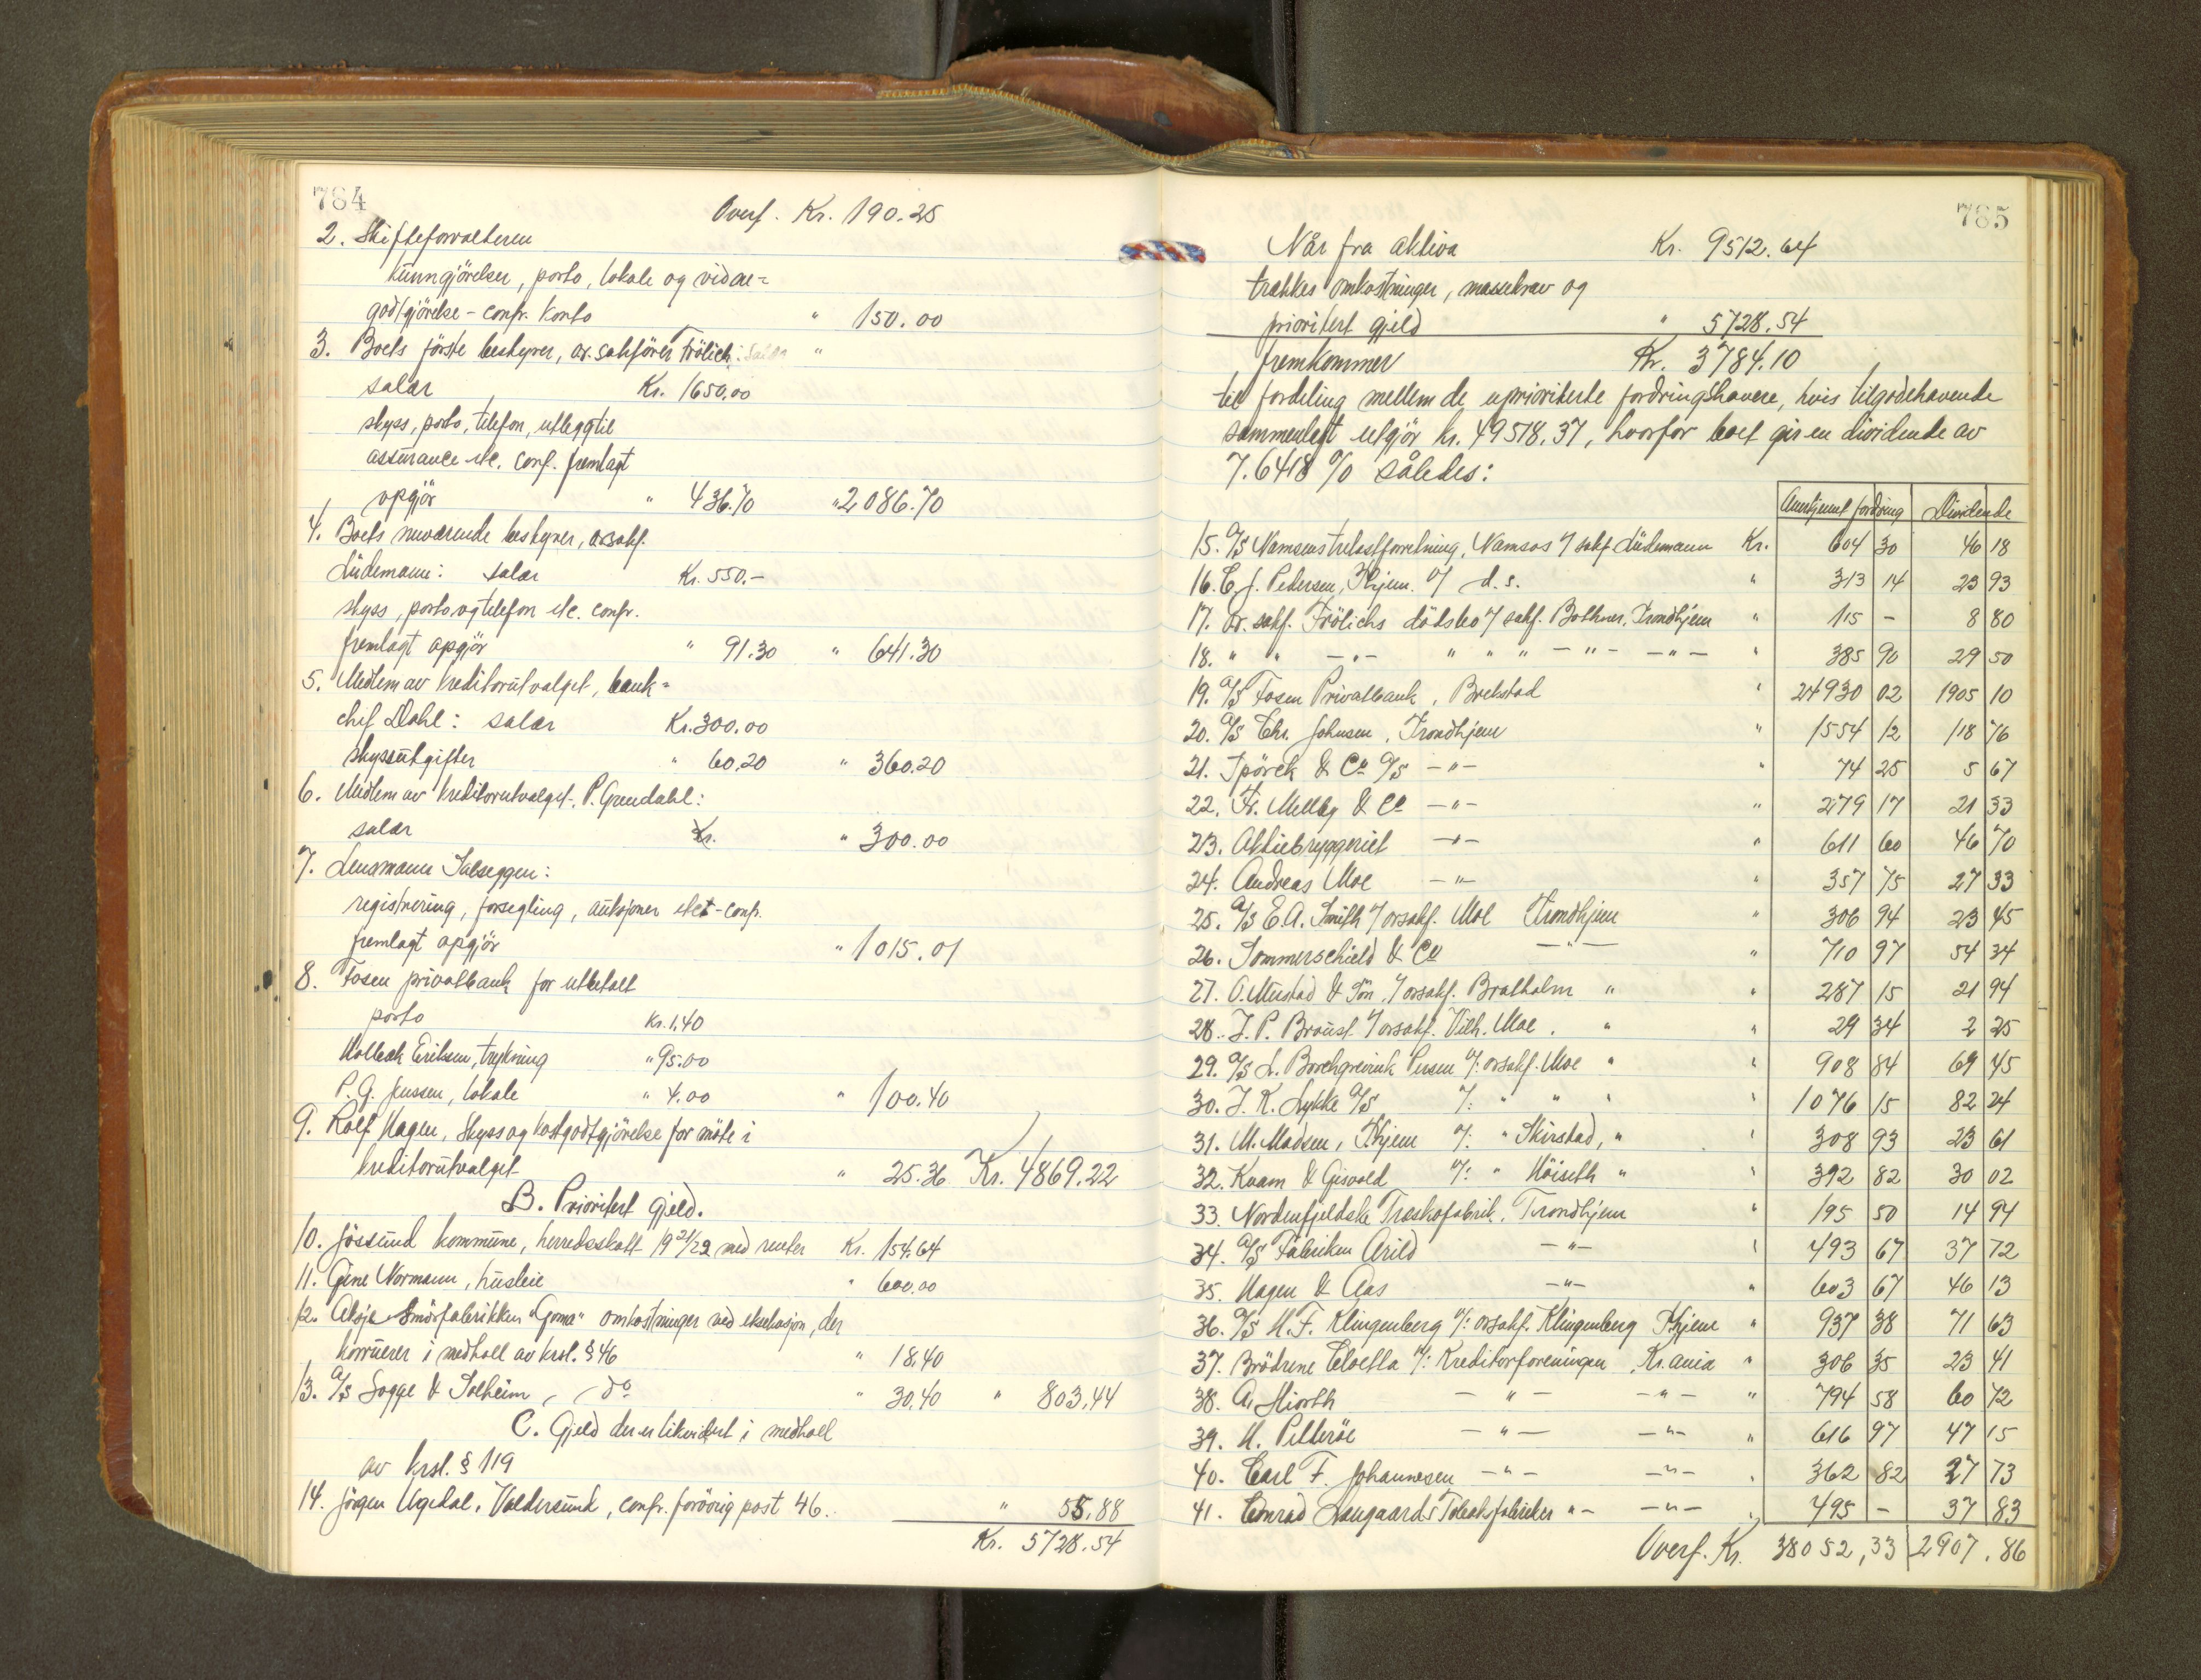 784
Overf. Kr. 190.25
2. Skifteforvalteren
kunngjörelser, porto, lokale og vidne-
godtgjörelse - confr. konto " 150.00
3. Boets förste bestyrer, or. sakförer Frölich: "
salær Kr. 1650.00
skyss, porto, telefon, utlegg til
assurance etc. conf. fremlagt
opgjör " 436.70 " 2086.70
4. Boets nuværende bestyrer, orsakf.
Lüdemann: salær Kr. 550.-
skyss, porto, og telefon etc. confr.
fremlagt opgjör " 91.30 " 641.30
5. Medlem av kreditorutvalget, bank-
chef Dahl: salær Kr. 300.00
skyssutgifter " 60.20 " 360.20
6. Medlem av kreditorutvalget, P. Grendahl:
salær Kr. " 300.00
7. Lensmann Salseggen:
registrering, forsegling, auksjoner etc - confr.
fremlagt opgjör " 1015.01
8. Fosen privatbank for utbetalt
porto Kr. 1.40
Holbæk Eriksen, trykning " 95.00
P. G. Jenssen, lokale " 4.00 " 100.40
9. Rolf Hagen, skyss og kostgodtgjörelse for möte i
kreditorutvalget " 25.36 Kr. 4869.22
B. Prioritert gjeld.
10. Jössund kommune, herredsskatt 1921/22 med renter Kr. 154.64
11. Gine Normann, husleie " 600.00
12. Aksje Smörfabrikken "Goma" omkostninger ved eksekusjon, der
konkurrerer i medhold av krsl. § 46 " 18.40
13. A/S Sogge & Solheim, do " 30.40 " 803.44
C. Gjeld der er likvidert i medhold
av krsl. § 119
14. Jörgen Ugedal, Valdersund, confr. forövrig post 46. " 55.88
Kr. 5728.54
785
Når fra aktiva Kr. 9512.64
trækkes omkostninger, massekrav og
prioritert gjeld " 5728.54
fremkommer Kr. 3784.10
til fordeling mellem de uprioriterte fordringshavere, hvis tilgodehavende
sammenlagt utgjör kr. 49518.37, hvorfor boet gir en dividende av
7.6418 % således:
Anerkjent fordring Dividende
15. A/S Namsens trelastforretning, Namsos v/ sakf. Lüdemann Kr. 604 30 46 18
16. C. J. Pedersen, Thjem. v/ d. s. " 313 14 23 93
17. Or. sakf. Frölichs dödsbo v/ sakf. Bothner, Trondhjem " 115 - 8 80
18. " " -"- " " " -"- -"- " 385 90 29 50
19. A/S Fosen Privatbank, Brekstad " 24930 02 1905 10
20. A/S Chr. Johnsen, Trondhjem " 1554 12 118 76
21. Spörck & Co A/S -"- " 74 25 5 67
22. Fr. Melbÿ & Co -"- " 279 17 21 33
23. Aktiebryggeriet -"- " 611 60 46 70
24. Andreas Moe -"- " 357 75 27 33
25. A/S E. A. Smith v/ orsakf. Moe Trondhjem " 306 94 23 45
26. Sommerschield & Co -"- " 710 97 54 34
27. O. Mustad & Sön, v/ orsakf. Bratholm " " 287 15 21 94
28. J. P. Broust v/ orsakf. Vilh. Moe. " " 29 34 2 25
29. A/S L. Borchgrevink Persen v/: orsakf. Moe " " 908 84 69 45
30. J. K. Lykke A/S v/: " " " " 1076 15 82 24
31. M. Madsen, Thjem v/: " Skirstad, " " 308 93 23 61
32. Kvam & Gisvold v/: " Höiseth " " 392 82 30 02
33. Nordenfjeldske Træskofabrik, Trondhjem " 195 50 14 94
34. A/S Fabriken Arild -"- " 493 67 37 72
35. Hagen & Aas -"- " 603 67 46 13
36. A/S H. F. Klingenberg v/: orsakf. Klingenberg Thjem " 937 38 71 63
37. Brödrene Cloetta v/: Kreditorforeningen, Kr.ania " 306 35 23 41
38. A. Hiorth -"- -"- " 794 58 60 72
39. H. Petteröe -"- -"- " 616 97 47 15
40. Carl F. Johannesen -"- -"- " 362 82 27 73
41. Conrad Langaards Tobaksfabriker "- -"- " 495 - 37 83
Overf. Kr. 38052,33 2907.86